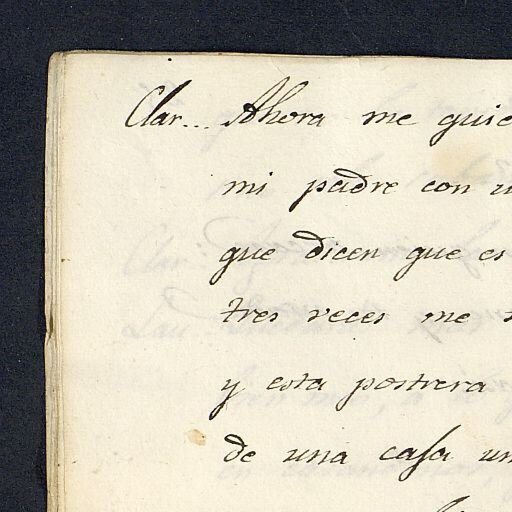 Clar... Ahora me quie
mi padre con u
que dicen que es
tres veces me
y esta postrera
de una casa un